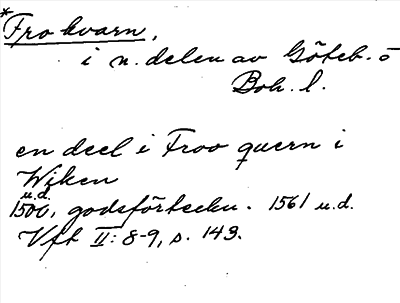 *Fro kvarn,
i n. delen av Göteb. o
Boh. l.
en deel i Froo quern i
Wiken
u.d.
1500, godsförteckn. 1561 u.d.
Vft II: 8-9, s. 143.